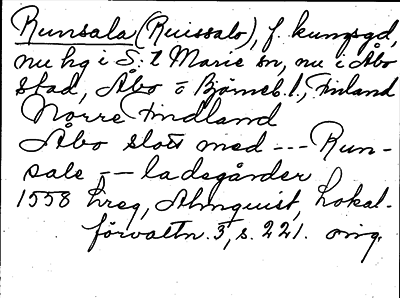 Runsala (Ruissalo), f. kungsgd,
nu hg i S:t Marie sn, nu i Åbo
stad, Åbo o Björneb. l., Finland
Norre Findland
Åbo slott med --- Run-
sale -- ladsgårder
1558 hreg, Almquist, Lokal-
förvaltn. 3, s. 221. orig.